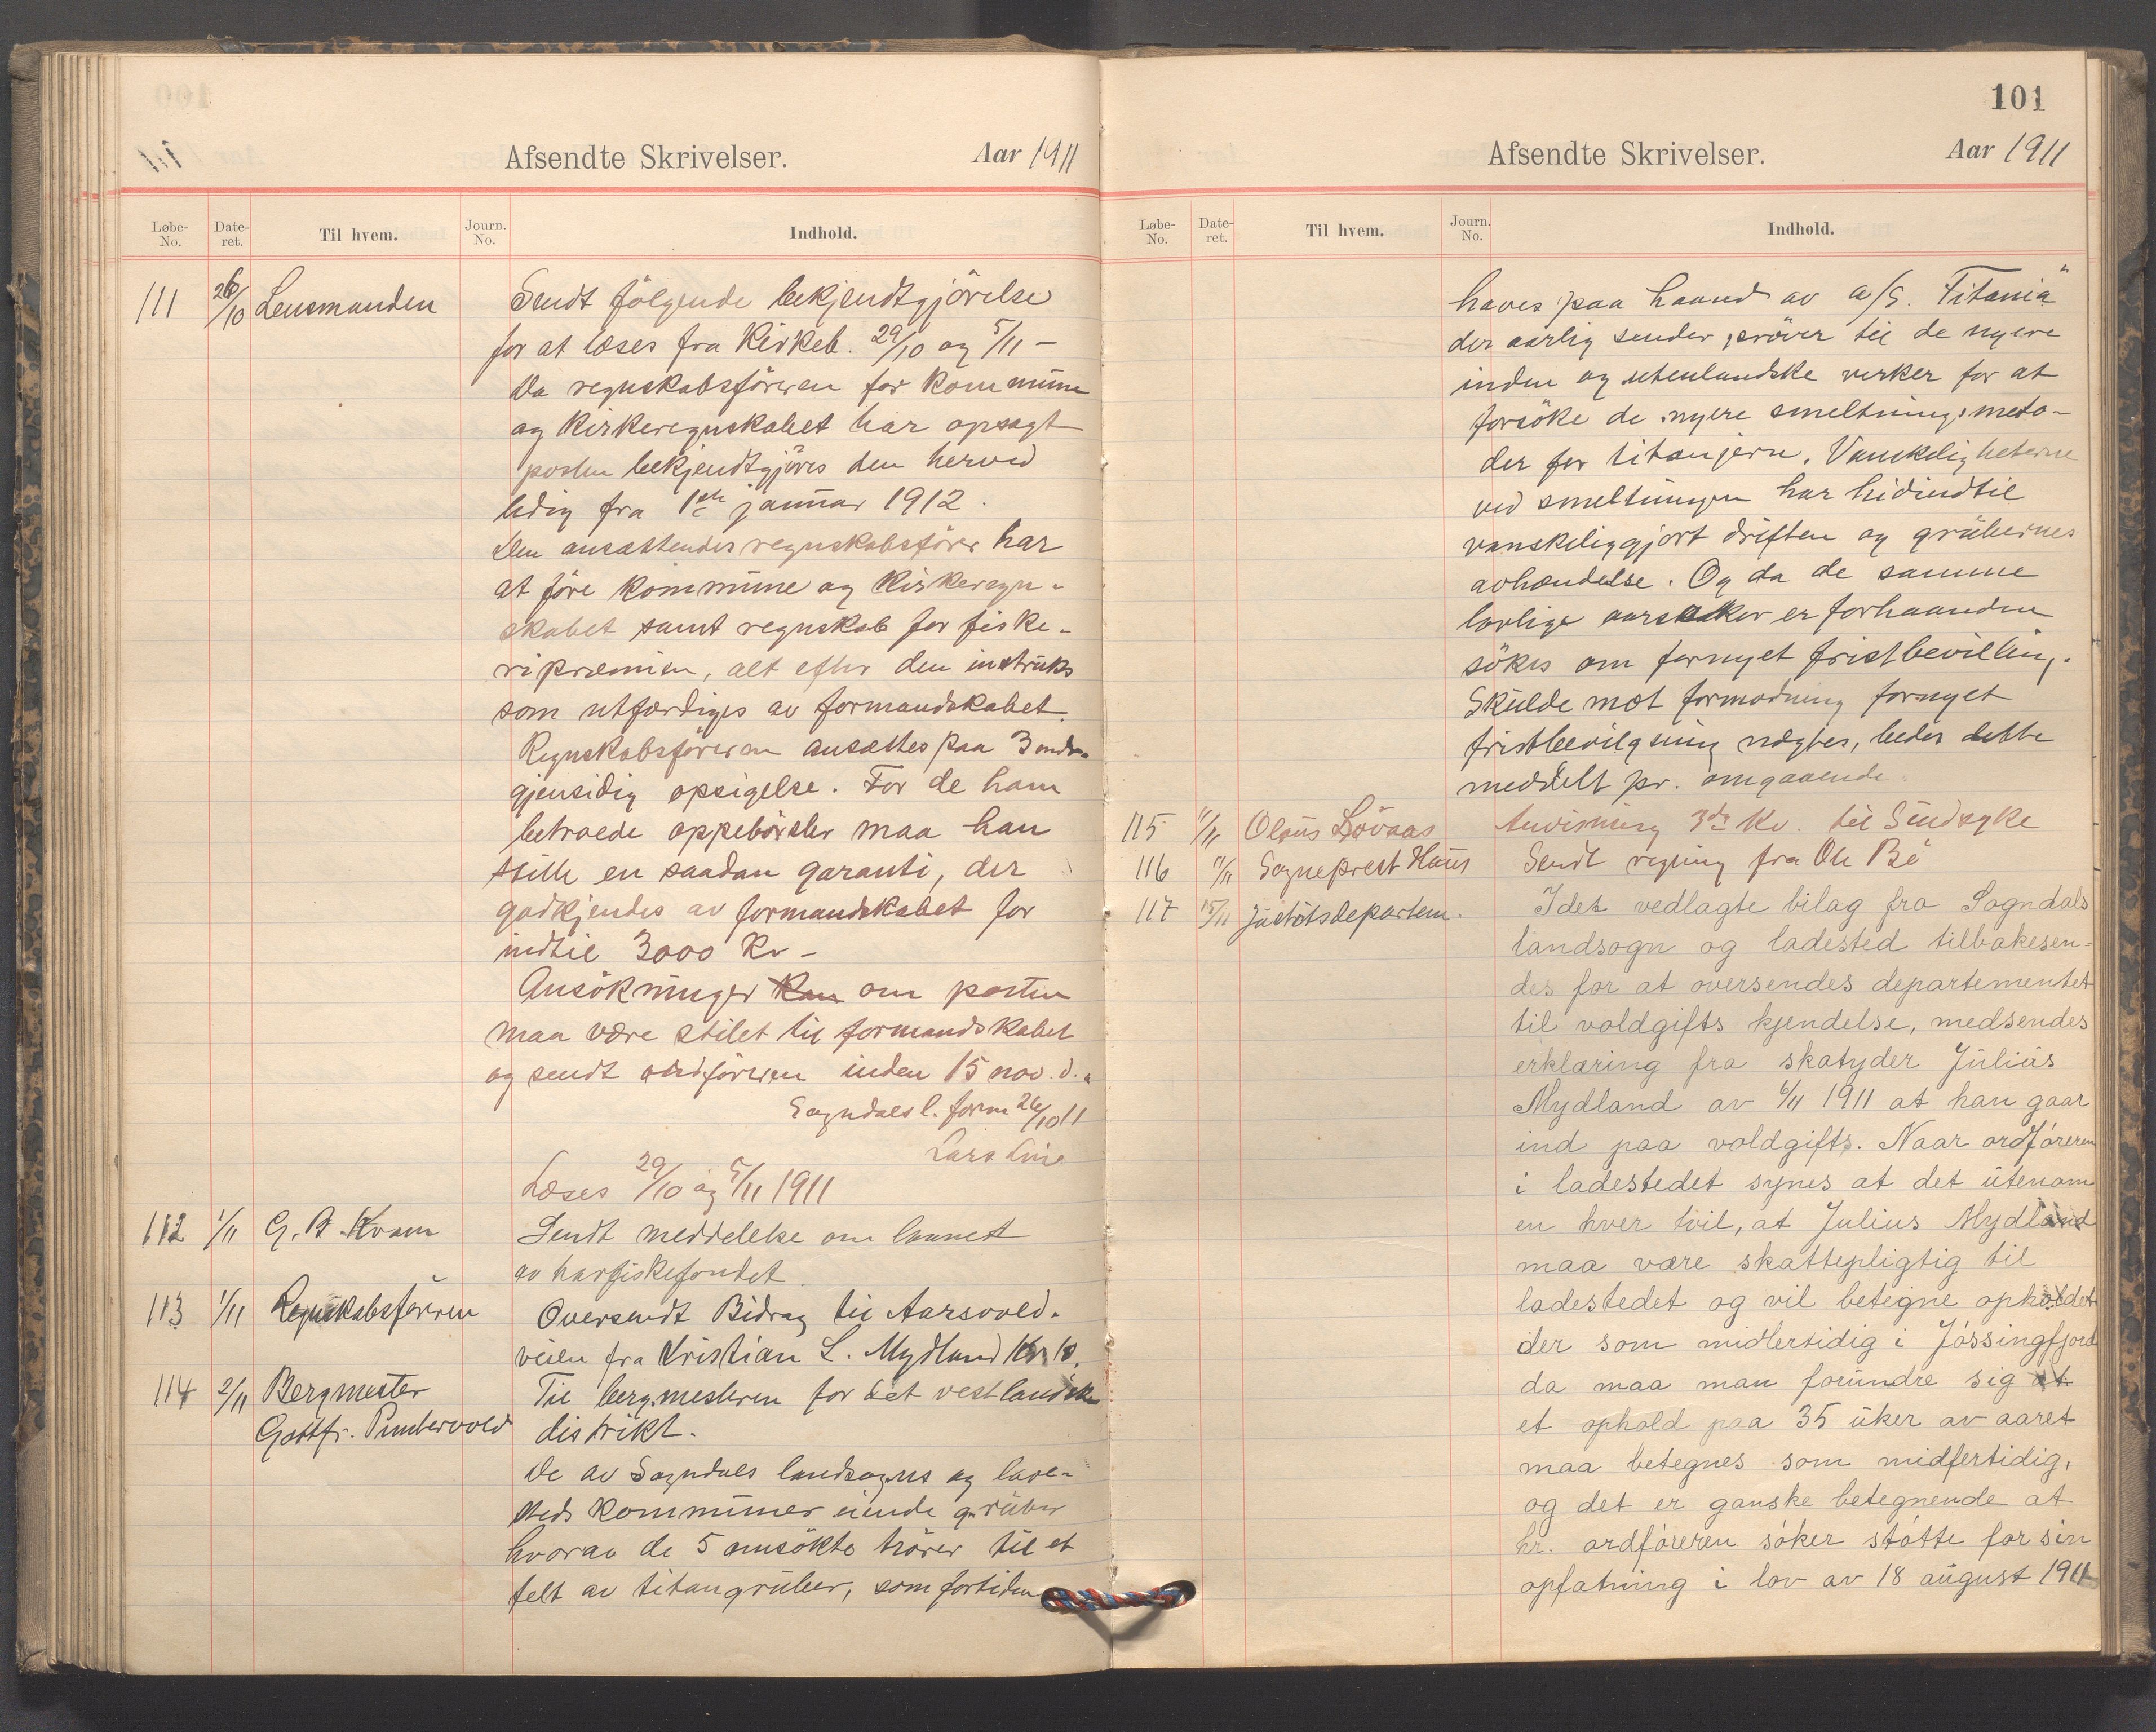 111
Afsendte Skrivelser.
Aar 1911
Løbe-No. Date-ret. Til hvem. Journ. No. Indhold.
111 26/10 Lensmanden Sendt följende bekjendtgjörelse
for at læses fra Kirkeb. 29/10 og 5/11 –
Da regnskabsföreren for kommune
og Kirkeregnskabet har opsagt
posten bekjendtgjöres den herved
ledig fra 1ste januar 1912.
Den ansættendes regnskabsförer har
at före kommune og Kirkeregn-
skabet samt regnskab for fiske-
ripræmien, alt efter den instruks
som utfærdiges av formandskabet.
Regnskabsföreren ansættes paa 3 mdrs
gjensidig opsigelse. For de ham
betroede oppebörsler maa han
stille en saadan garanti, der
godkjendes av formandskabet for
indtil 3000 Kr –
Ansökninger Kan om posten
maa være stilet til formandskabet
og sendt ordföreren inden 15 nov. d.a
Sogndals l. form 26/10 11
Lars Linie
Læses 29/10 og 5/11 1911
112 1/11 G. B. Kvam Sendt meddelelse om laanet
av havfiskefondet.
113 1/11 Regnskabsföreren Oversendt Bidrag til Aarsvold-
veien fra Kristian L. Mydland Kr 10.
114 2/11 Bergmester Til bergmesteren for det vestlandske
Gottfr. Pimbervold distrikt.
De av Sogndals landsogns og lade-
steds kommuner eiende gruber
hvorav de 5 omsökte hörer til et
felt av titangruber, som fortiden
101
Afsendte Skrivelser.
Aar 1911
Løbe-No. Date-ret. Til hvem. Journ. No. Indhold.
haves paa haand av a/S. Titania"
der aarlig sender pröver til de nyere
inden og utenlandske verker for at
forsöke de nyere smeltningsmeto-
der for titanjern. Vanskeligheterne
ved smeltningen har hidindtil
vanskeliggjort driften og grubernes
avhændelse. Og da de samme
lovlige aarsaker er forhaanden
sökes om fornyet fristbevilling.
Skulde mot formodning fornyet
fristbevilgning nægtes, bedes dette
meddelt pr. omgaaende.
115 11/11 Olaus Lövaas Anvisning 3de Kv. til Sindsyke
116 11/11 Sogneprest Haus Sendt regning fra Ole Bö
117 15/11 Justitsdepartem. Idet vedlagte bilag fra Sogndals
landsogn og ladested tilbakesen-
des for at oversendes departementet
til voldgifts kjendelse, medsendes
erklæring fra skatyder Julius
Mydland av 6/11 1911 at han gaar
ind paa voldgifts. Naar ordföreren
i ladestedet synes at det utenom
en hver tvil, at Julius Mydland
maa være skattepligtig til
ladestedet og vil betegne opholdet
der som midlertidig i Jössingfjord
da maa man forundre sig at
et ophold paa 35 uker av aaret
maa betegnes som midfertidig,
og det er ganske betegnende at
hr. ordföreren söker stötte for sin
opfatning i lov av 18 august 1911